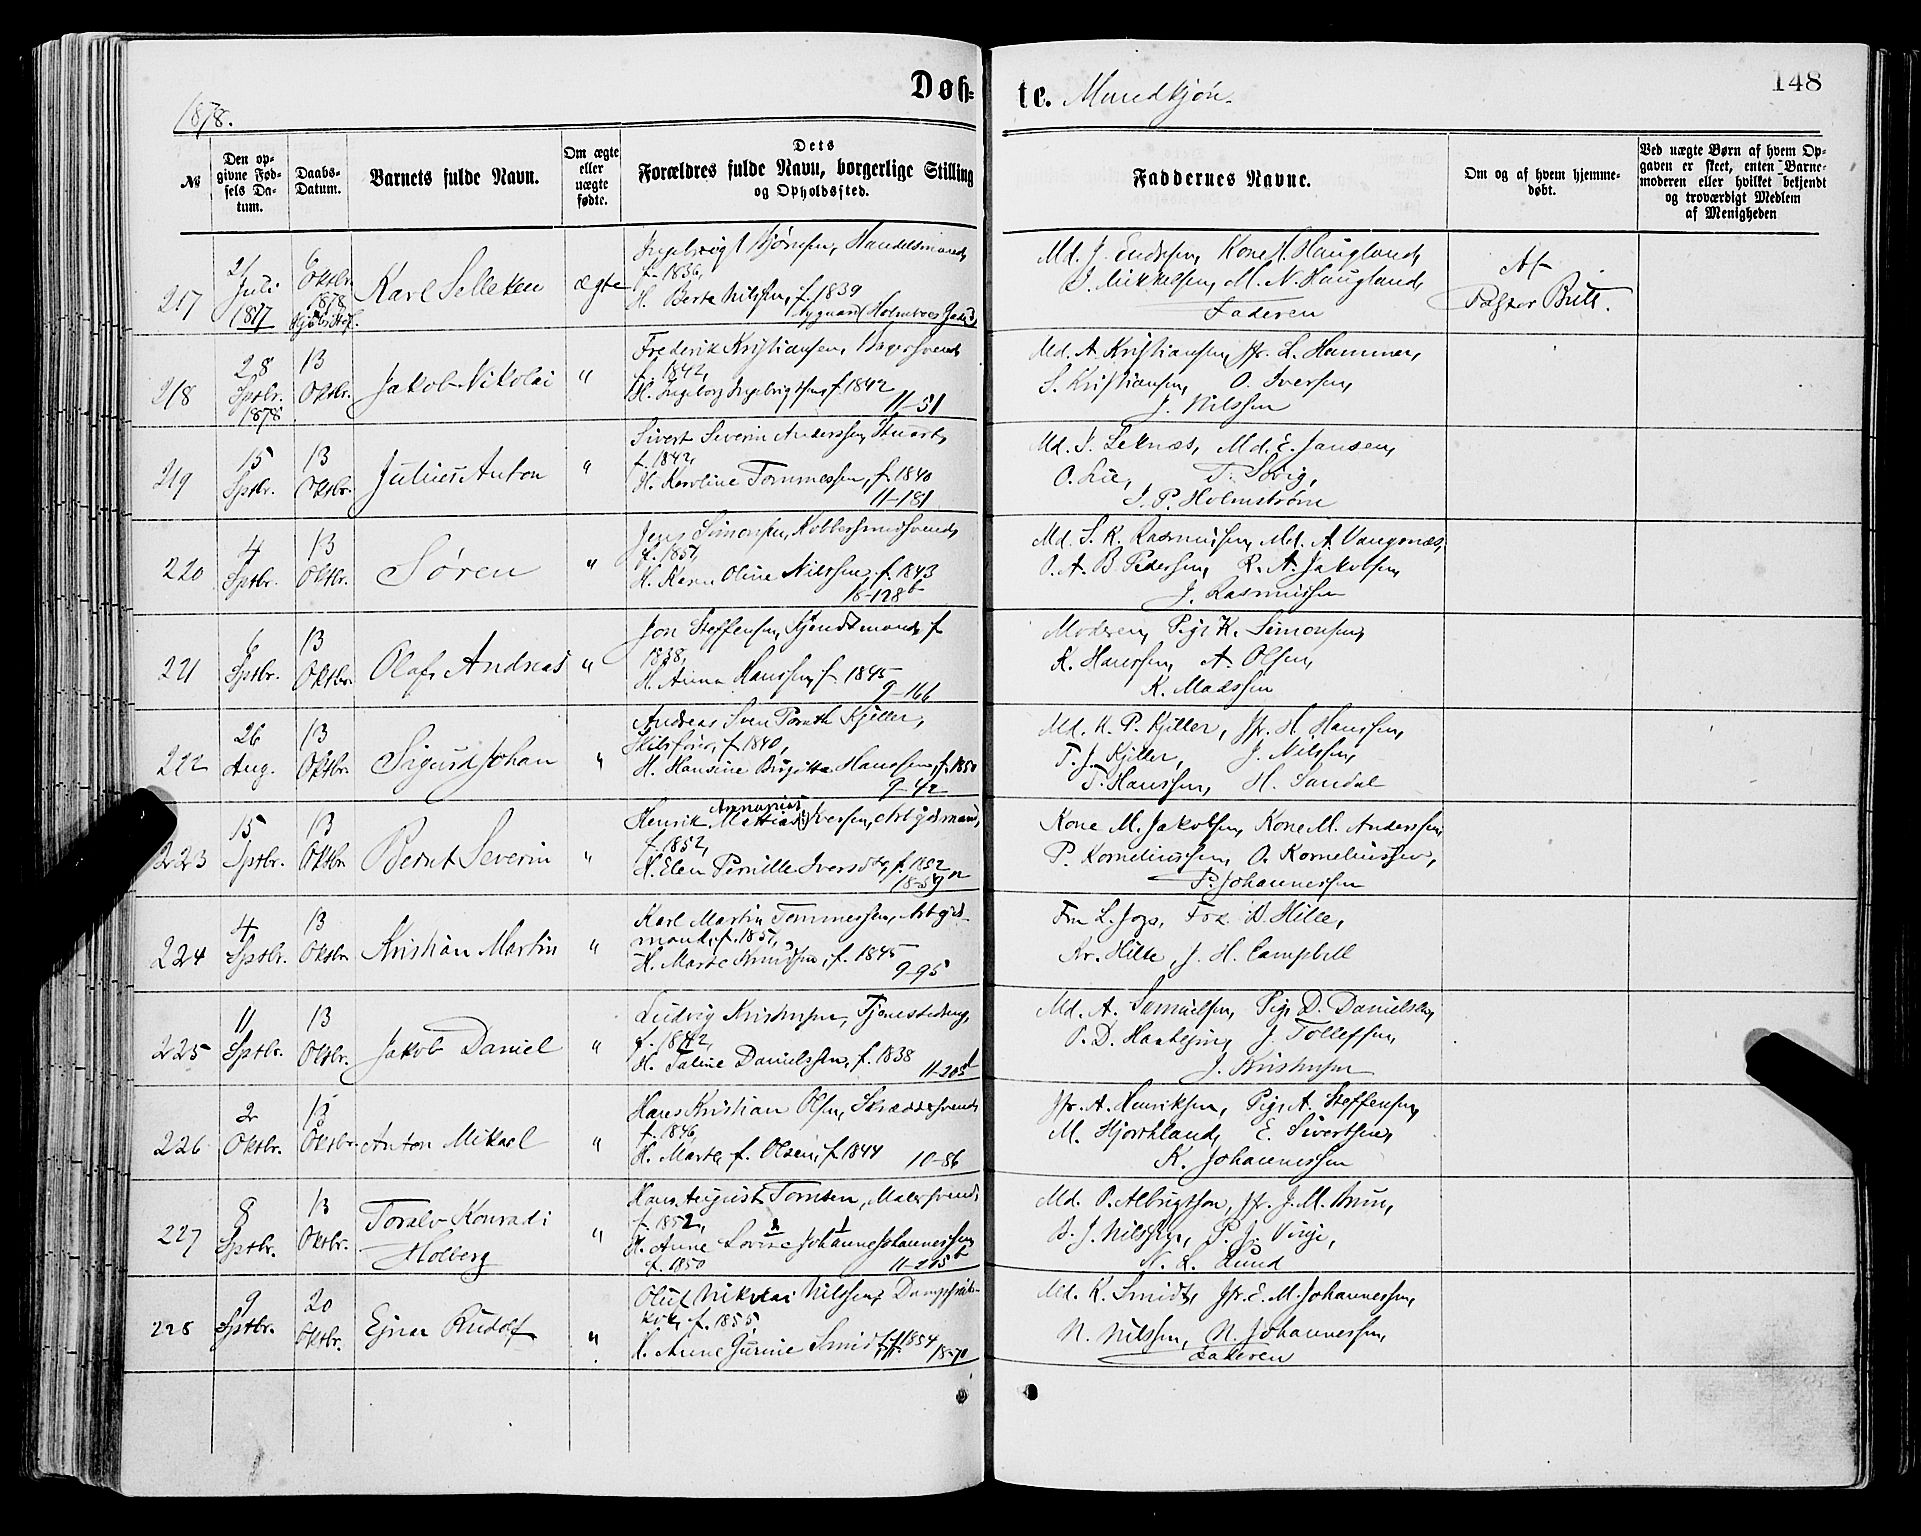 1878.
Døb-
te. Mandkjøn.
148
№
Den op-
givne Fød-
sels Da-
tum.
Daabs-
Datum.
Barnets fulde Navn.
Om ægte
eller
uægte
fødte.
Dets
Forældres fulde Navn, borgerlige Stilling
og Opholdssted.
Faddernes Navne.
Om og af hvem hjemme-
døbt.
Ved uægte Børn af hvem Op-
gaven er skeet, enten Barne-
moderen eller hvilket bekjendt
og troværdigt Medlem
af Menigheden
217
21
Juli
1877
6
Oktbr.
1878
Karl Selleken
ægte
Handelsmand,
f. 1836,
H. Berte Nilssen, f. 1839
Kone N. Haugland,
J. Mikkelsen, M. N. Haugland,
Faderen
Af
218
28
Sptbr.
1878
13
Oktbr.
Jakob Nikolai
"
Frederik Kristiansen, Bagersvend,
f. 1842,
H. Ingeborg Ingebrigtsen, f. 1842
11-51
Md. A. Kristiansen, Jfr. L. Hammer,
S. Kristiansen, O. Iversen,
J. Nilssen
219
15
Sptbr.
13
Oktbr.
Julius Anton
"
Sivert Severin Anderssen, Stuert,
f. 1842,
H. Karoline Tommessen, f. 1840
11-181
Md. J. Leknæs, Md. E. Jansen,
O. Lie, T. Søvig,
J. P. Holmstrøm
220
4
Sptbr.
13
Oktbr.
Søren
"
Jens Simonsen, Kobbersmedsvend,
f. 1851,
H. Karen Oline Nilssen, f. 1843
18-128 b
Md. S. K. Rasmussen, Md. A. Vangsnæs,
O. A. B. Pedersen, R. A. Jakobsen,
J. Rasmussen
221
6
Sptbr.
13
Oktbr.
Olaf Andreas
"
Jon Steffensen, f.
1838,
H. Anna Hanssen, f. 1845
9-166
Moderen, Pige K. Simonsen,
K. Hanssen, A. Olsen,
K. Madssen
222
26
Aug.
13
Oktbr.
Sigurd Johan
"
Andreas Sven Kjeller,
Skibsfører, f. 1840,
H. Hansine Birgitte Hanssen, f. 1850
9-42
Md. K. P. Kjeller, Jfr. H. Hanssen,
T. J. Kjeller, J. Nilssen,
T. Hanssen, H. Sandal
223
15
Sptbr.
13
Oktbr.
Bernt Severin
"
Annanias
Henrik Mattias Iversen, Arbgdsmand,
f. 1852,
H. Elen Pernille Iversdtr, f. 1852
18-59 n
Kone M. Jakobsen, Kone M. Anderssen,
P. Korneliussen, O. Korneliussen,
P. Johannessen
224
4
Sptbr.
13
Oktbr.
Kristian Martin
"
Karl Martin Tommessen, Arbgds-
mand, f. 1851,
H. Marte Knudsen, f. 1845
9-95
Fru L. Joys, Frk. D. Hille,
Ar. Hille, J. H. Campbell
225
11
Sptbr.
13
Oktbr.
Jakob Daniel
"
Ludvig Kristensen, Tjenestedreng,
f. 1842,
H. Taline Danielssen, f. 1838
11-205 d
Md. A. Samuelsen, Pige D. Danielsen,
J. Tollefsen,
J. Kristensen
226
2
Oktbr.
13
Oktbr.
Anton Mikael
"
Hans Kristian Olsen, Skræddersvend,
f. 1846,
H. Marte f. Olsen, f. 1844
10-86
Jfr. A. Henriksen, Pige A. Steffensen,
M. Hjorthland, E. Sivertsen,
K. Johannessen
227
8
Sptbr.
13
Oktbr.
Toralv Konradi
Holberg
"
Hans August Tomsen, Malersvend,
f. 1852,
2 1
H. Anne Lovise Johanne Johannessen,
f. 1850
11-215 b
Md. O. Albrigtsen, Jfr. J. M. Brun,
B. J. Nilssen, P. J. Vinje,
N. L. Lund
228
9
Sptbr.
20
Oktbr.
Ejnar Rudolf
"
Oluf Nikolai Nilssen,
kok, f. 1855,
H. Anne Gurine Smidt, f. 1854
18-70
Md. K. Smidt, Jfr. E. M. Johannessen,
N. Nilssen, N. Johannessen,
Faderen